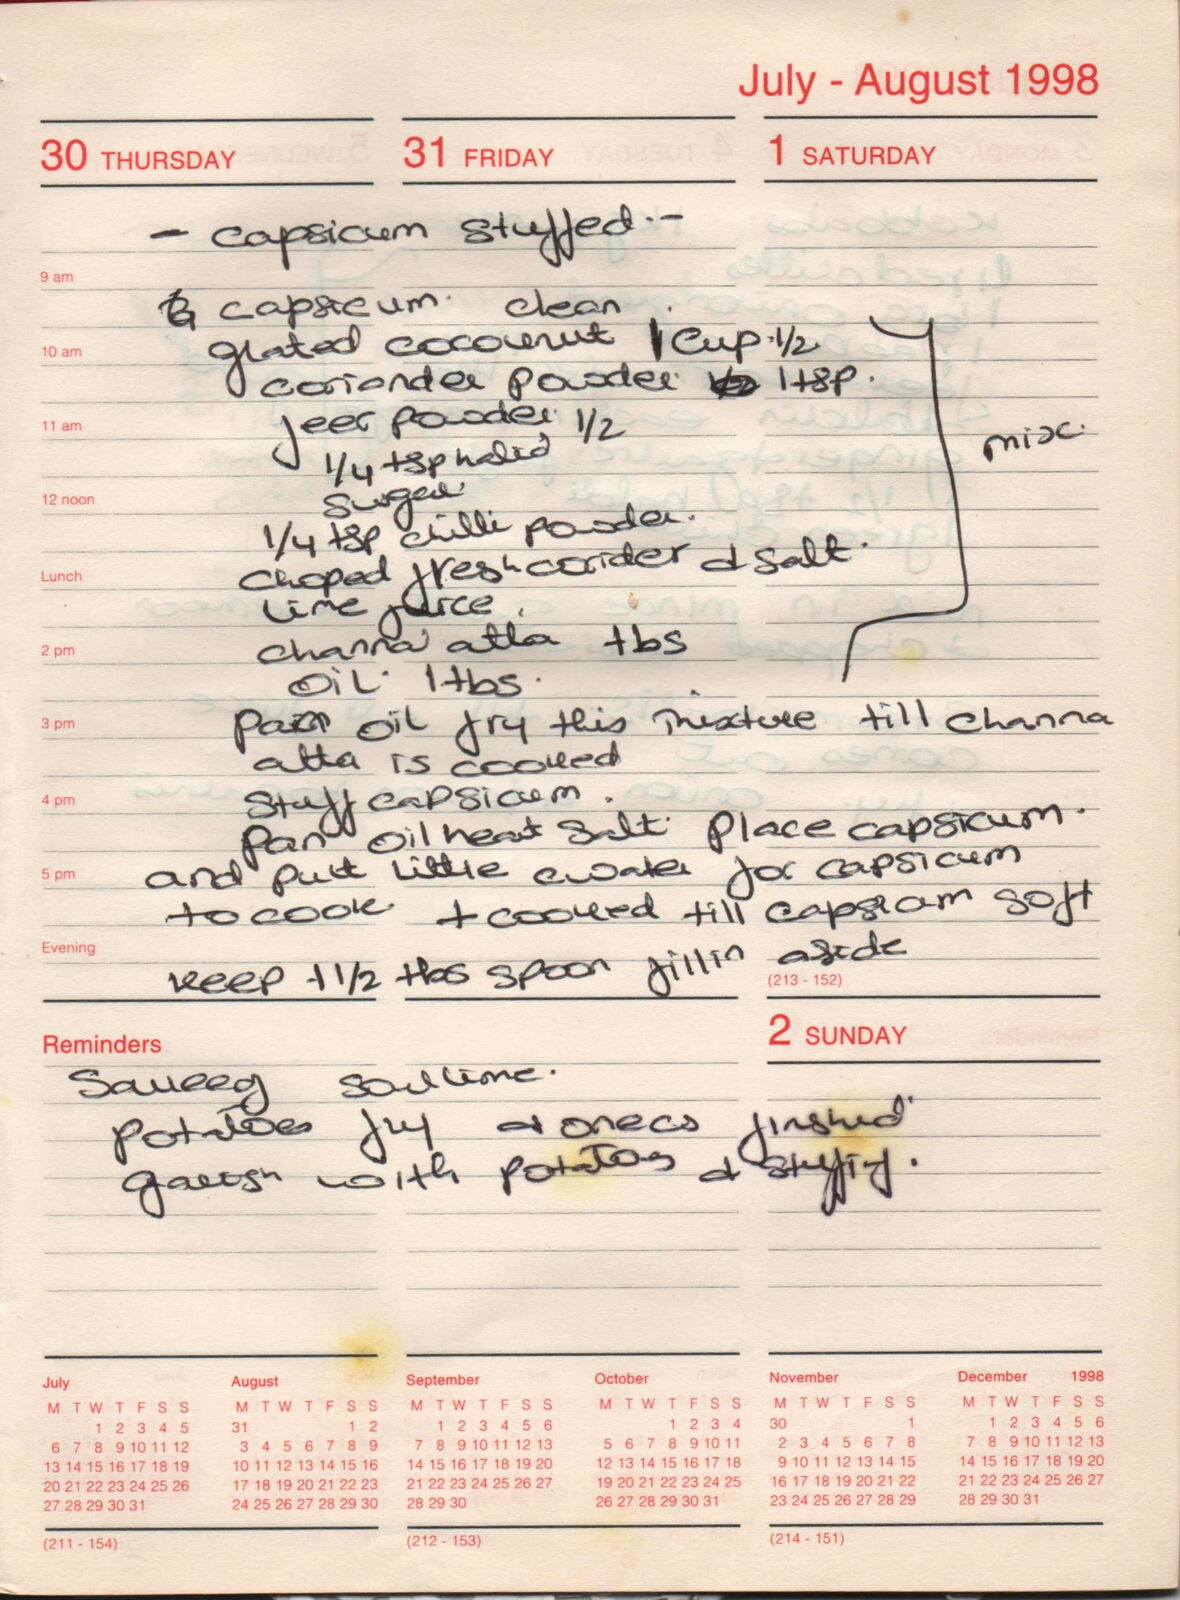 July - August 1998
30 THURSDAY
31 FRIDAY
1 SATURDAY
- capsicum stuffed -
6 capsicum. clean
9 am
grated cocounut 1 Cup 1/2
10 am
coriander powder 1tsp.
jeer powder 1/2
11 am
1/4 tsp haldi
misc.
suger
12 noon
1/4 tsp chilli powder.
choped fresh corider & salt.
Lunch
lime juice.
channa atta tbs
2 pm
OIL 1tbs.
pan oil fry this mixture till channa
3 pm
atta is cooked
stuff capsicum.
4 pm
pan oil heat salt. Place capsicum.
and putt little water for capsicum
5 pm
to cook + cooked till capsicum soft
Evening
keep +1/2 tbs spoon fillin aside
(213 - 152)
Reminders
2 SUNDAY
lime.
potatoes fry & onecs finshed
garish with potatoes & stuffing.
July
August
September
October
November
December 1998
M T W T F S S
1 2 3 4 5
6 7 8 9 10 11 12
13 14 15 16 17 18 19
20 21 22 23 24 25 26
27 28 29 30 31
M T W T F S S
31 1 2
3 4 5 6 7 8 9
10 11 12 13 14 15 16
17 18 19 20 21 22 23
24 25 26 27 28 29 30
M T W T F S S
1 2 3 4 5 6
7 8 9 10 11 12 13
14 15 16 17 18 19 20
21 22 23 24 25 26 27
28 29 30
M T W T F S S
1 2 3 4
5 6 7 8 9 10 11
12 13 14 15 16 17 18
19 20 21 22 23 24 25
26 27 28 29 30 31
M T W T F S S
30 1
2 3 4 5 6 7 8
9 10 11 12 13 14 15
16 17 18 19 20 21 22
23 24 25 26 27 28 29
M T W T F S S
1 2 3 4 5 6
7 8 9 10 11 12 13
14 15 16 17 18 19 20
21 22 23 24 25 26 27
28 29 30 31
(211 - 154)
(212 - 153)
(214 - 151)